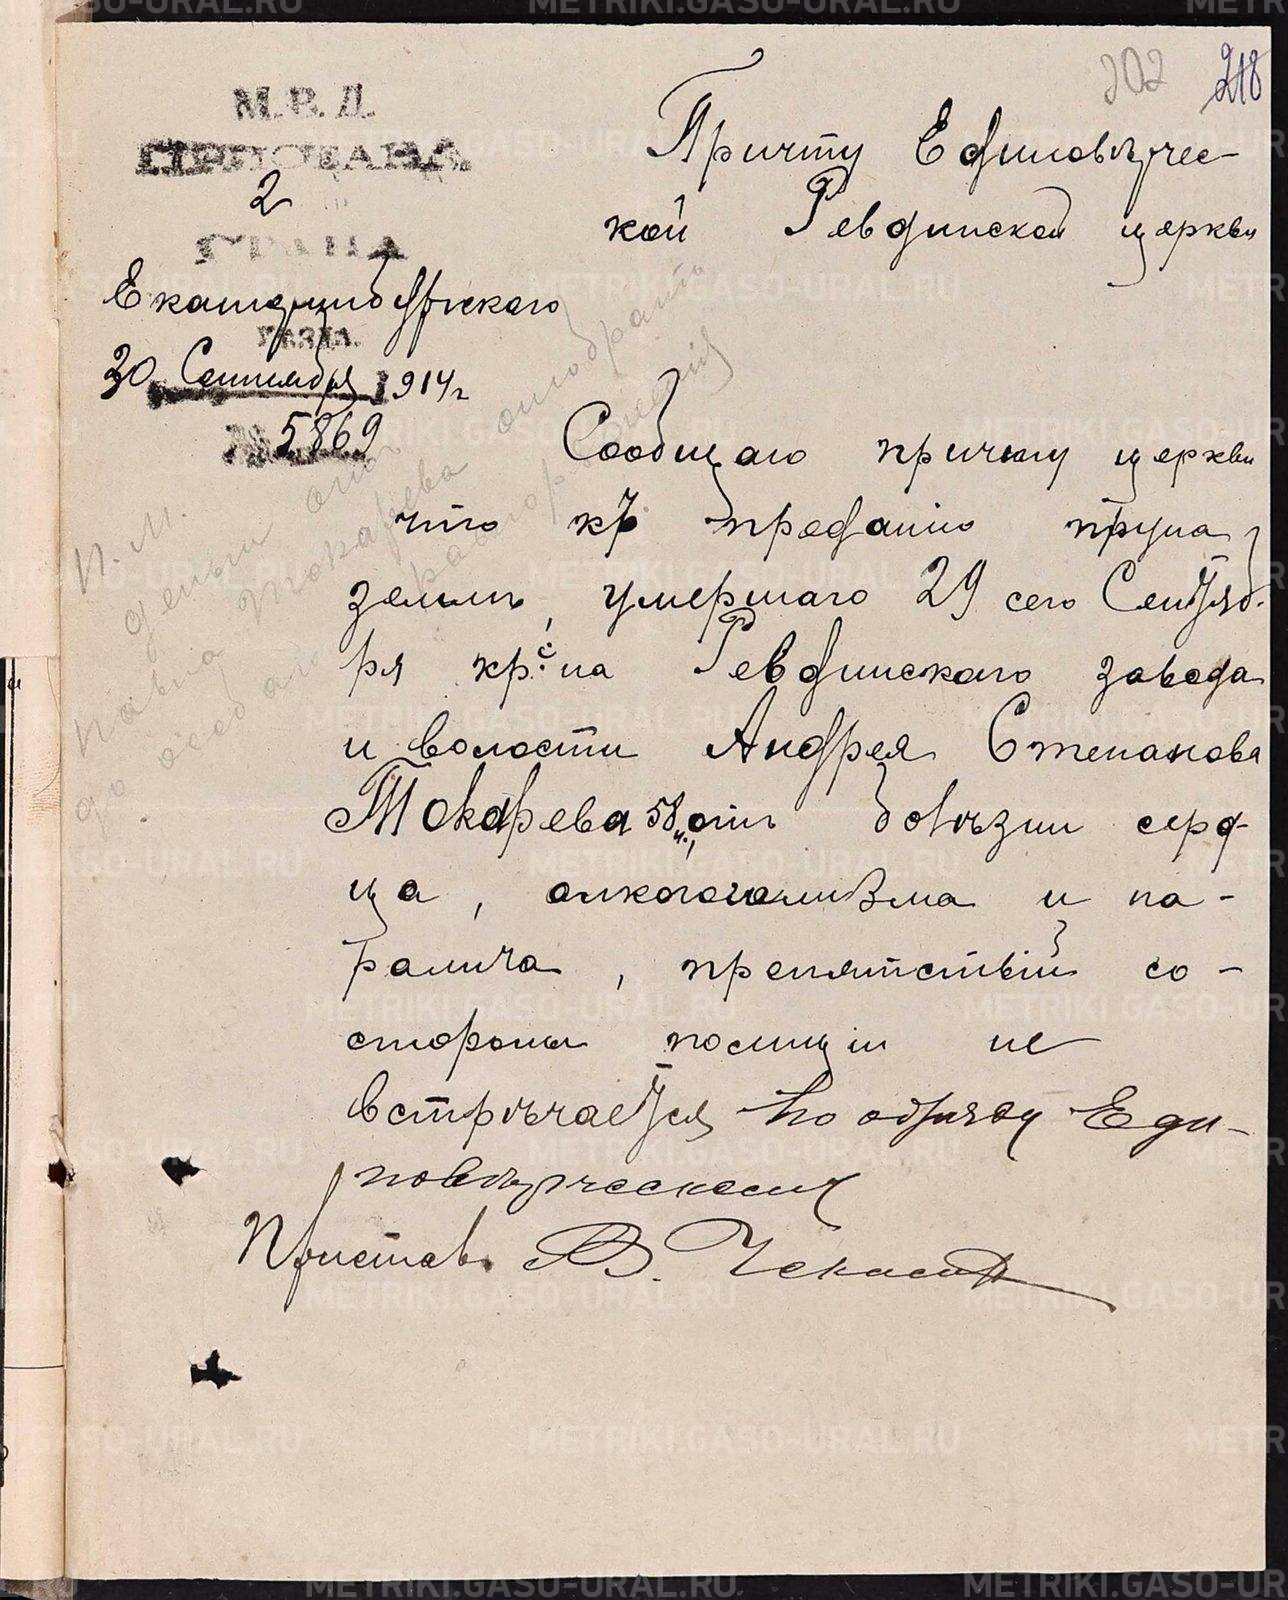 202 218
М. В. Д.
ПРИСТАВА
2
СТАНА
Екатеринбургскаго
УѢЗДА.
30 Сентября 1914 г
№ 5869
Причту Единовѣрчес-
кой Ревдинской церкви
Сообщаю причту церкви
что къ преданію трупа
землѣ, умершаго 29 сего Сентяб-
ря кр-на Ревдинскаго завода
и волости Андрея Степанова
Токарева 58 л., отъ болѣзни серд-
ца, алкоголизма и па-
ралича, препятствій со-
стороны полиціи не
встрѣчается по обряду Еди-
новѣрческому
Приставъ В. Чекасинъ
П. М.
деньги отъ отобрать
Павла Токарева
до особаго распоряженія
METRIKI.GASO-URAL.RU